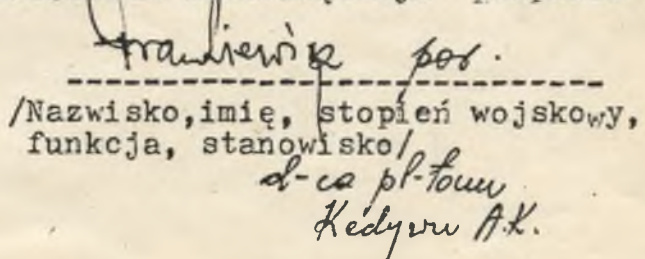 por.
/Nazwisko,imię, stopień wojskowy,
funkcja, stanowisko/
d-ca pl-tonu
Kedywu A.K.